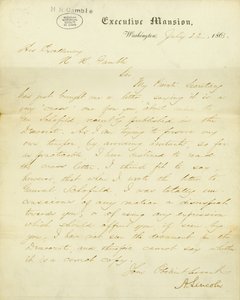 H R Gamble
Executive Mansion,
Washington, July 23, 1863.
His Excellency
H. R. Gamble
Sir
My Private Secretary
has just brought me a letter, saying it is a
very "cross" one from you, about mine to
Gen. Schofield, recently published in the
Democrat. As I am trying to preserve my
own temper, by avoiding irritants, so far
as practicable, I have declined to read
the cross letter. I think fit to say
however, that when I wrote the letter to
General Schofield, I was totally un-
conscious of any malice, or disrespect
towards you, or of using any expression
which should offend you, if seen by
you. I have not seen the document in the
Democrat, and therefore cannot say whether
it is a correct copy.
Your Obedient Servant
A. Lincoln